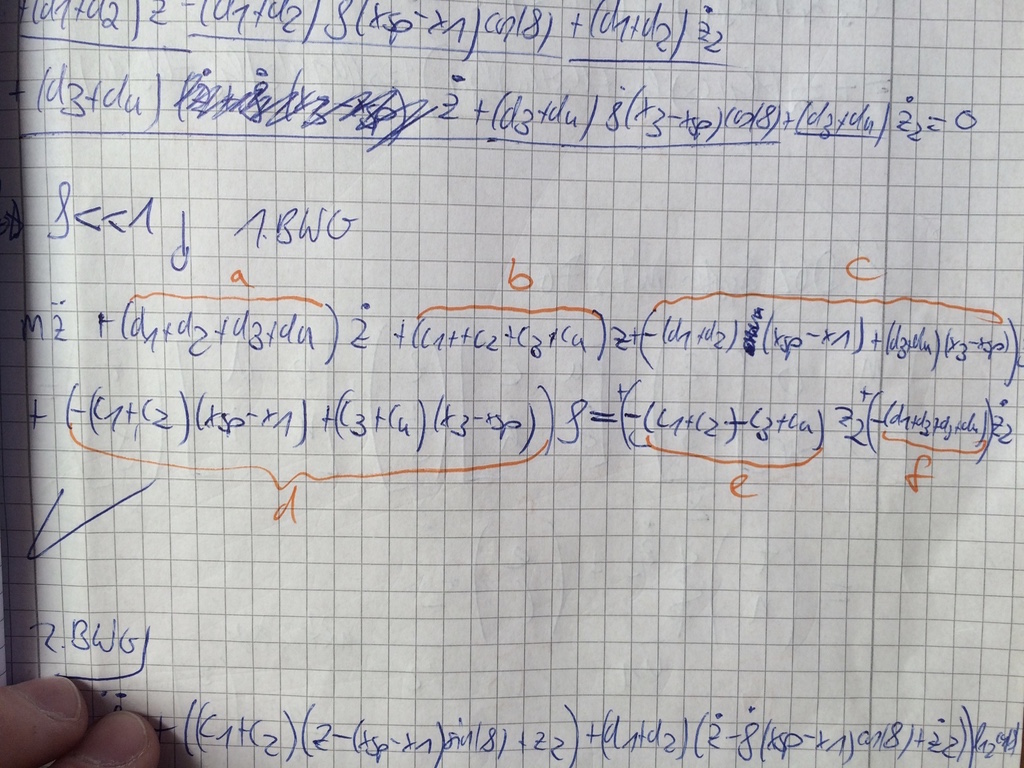 +(d1+d2) ż -(d1+d2) ϑ̇(xsp-x1)cos(ϑ) +(d1+d2) ż2
+(d3+d4) ż +(d3+d4) ϑ̇(x3-xsp)cos(ϑ)+(d3+d4) ż2=0
ϑ<<1 1.BWG
a b c
m z̈ +(d1+d2+d3+d4) ż +(c1+c2+c3+c4) z+(-(d1+d2) (xsp-x1)+(d3+d4)(x3-xsp))
+(-(c1+c2)(xsp-x1)+(c3+c4)(x3-xsp))ϑ=+(-(c1+c2)-c3+c4) z2+(-(d1+d2+d3+d4))ż2
d e f
2.BWG
+((c1+c2)(z-(xsp-x1)sin(ϑ)+z2)+(d1+d2)(ż-ϑ̇(xsp-x1)cos(ϑ)+ż2))